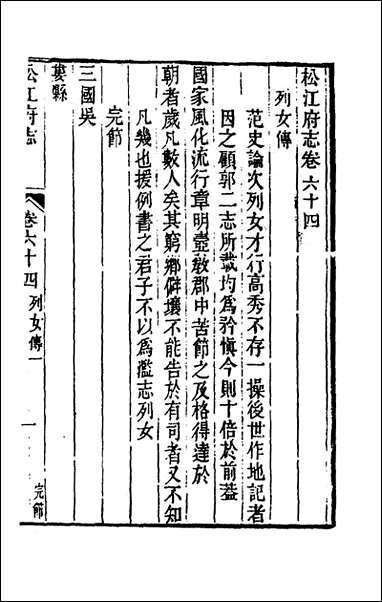 松江府志卷六十四
列女傳
范史論次列女才行高秀不存一操後世作地記者
因之顧郭二志所載均為矜愼今則十倍於前葢
國家風化流行章明壼敎郡中苦節之及格得達於
朝者歲凡數人矣其窮鄉僻壤不能告於有司者又不知
凡幾也援例書之君子不以為濫志列女
完節
三國吳
婁縣
松江府志
卷六十四
列女傳一
一
完節